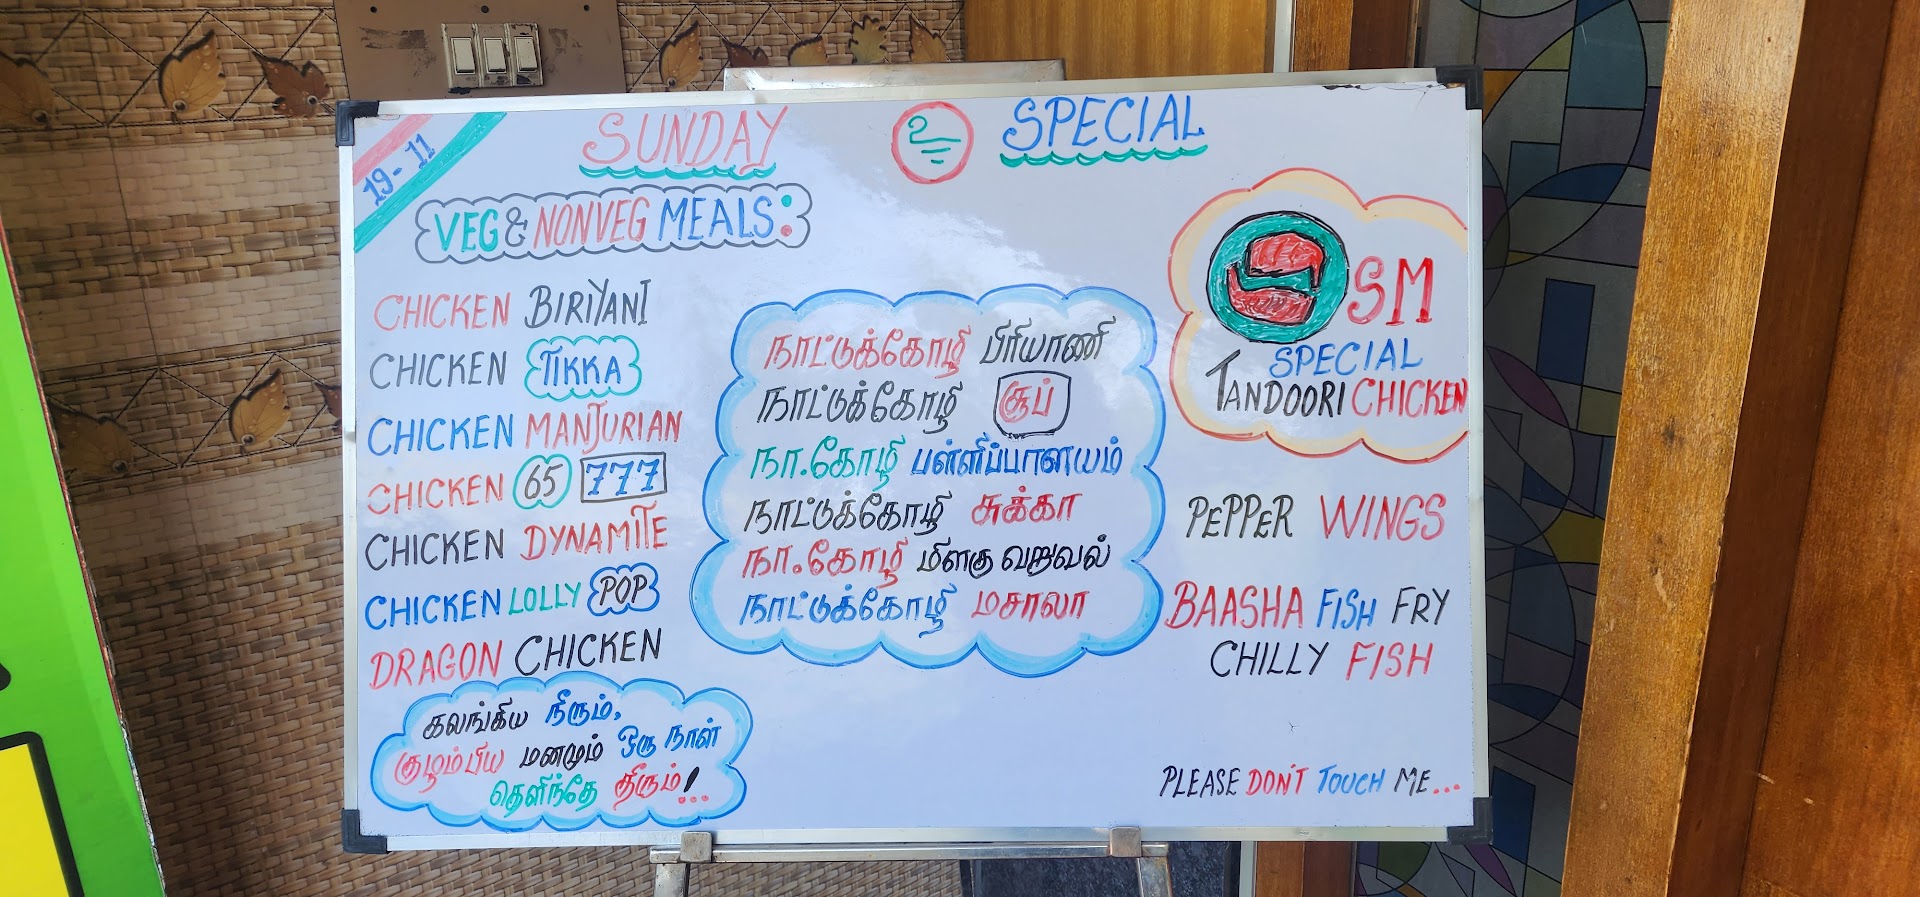 19-11
SUNDAY உ SPECIAL
VEG & NONVEG MEALS:
CHICKEN BIRIYANI
CHICKEN TIKKA
CHICKEN MANJURIAN
CHICKEN 65 777
CHICKEN DYNAMITE
CHICKEN LOLLY POP
DRAGON CHICKEN
கலங்கிய நீரும்,
குழம்பிய மனமும் ஒரு நாள்
தெளிந்தே தீரும்!...
நாட்டுக்கோழி பிரியாணி
நாட்டுக்கோழி சூப்
நா.கோழி பள்ளிப்பாளையம்
நாட்டுக்கோழி சுக்கா
நா.கோழி மிளகு வறுவல்
நாட்டுக்கோழி மசாலா
SM
SPECIAL
TANDOORI CHICKEN
PEPPER WINGS
BAASHA FISH FRY
CHILLY FISH
PLEASE DON'T TOUCH ME...